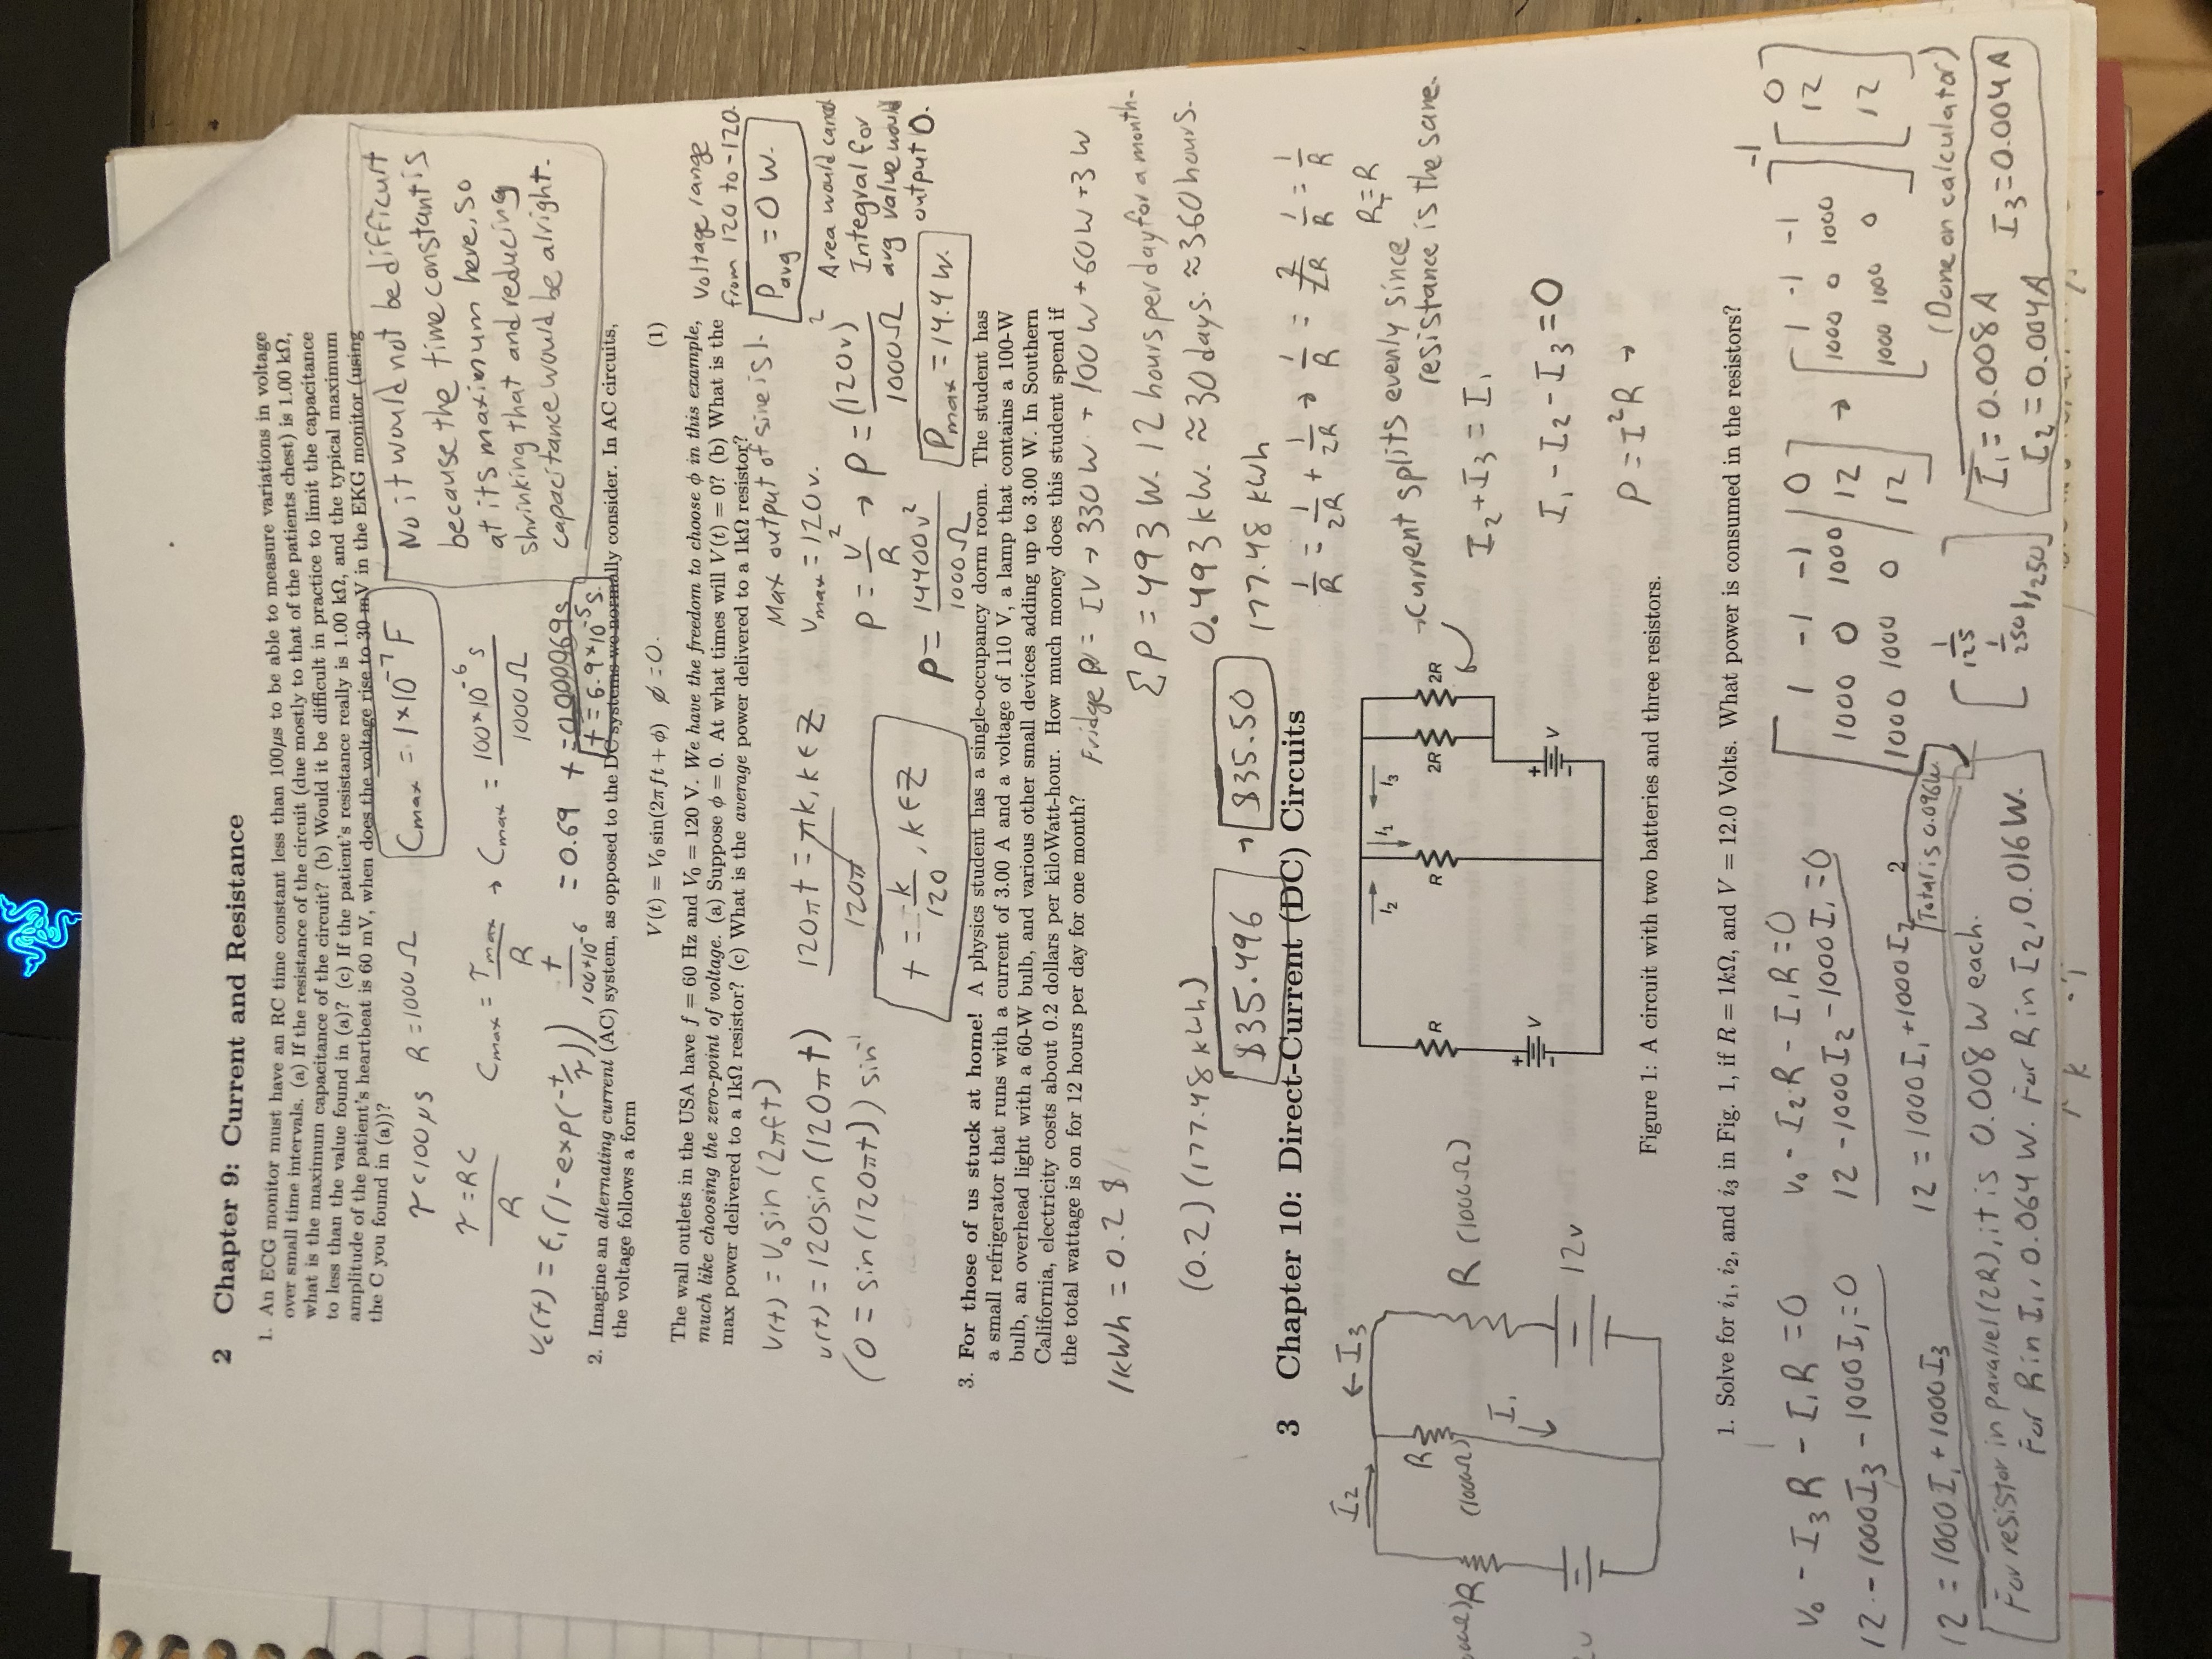 2 Chapter 9: Current and Resistance
1. An ECG monitor must have an RC time constant less than 100μs to be able to measure variations in voltage
over small time intervals. (a) If the resistance of the circuit (due mostly to that of the patients chest) is 1.00 kΩ,
what is the maximum capacitance of the circuit? (b) Would it be difficult in practice to limit the capacitance
to less than the value found in (a)? (c) If the patient's resistance really is 1.00 kΩ, and the typical maximum
amplitude of the patient's heartbeat is 60 mV, when does the voltage rise to 30 mV in the EKG monitor (using
the C you found in (a))?
τ < 100 μs R = 1000 Ω
Cmax = 1×10^-7 F
τ = RC
R
Cmax = τmax / R → Cmax = 100×10^-6 s / 1000 Ω
No it would not be difficult
because the time constant is
at its maximum here, so
shrinking that and reducing
capacitance would be alright.
Vc(t) = ε1(1-exp(-t/τ)) t / 100×10^-6 = 0.69 t = 0.000069s
t = 6.9×10^-5 s.
2. Imagine an alternating current (AC) system, as opposed to the DC systems we normally consider. In AC circuits,
the voltage follows a form
V(t) = V0 sin(2πft + ϕ) ϕ = 0. (1)
The wall outlets in the USA have f = 60 Hz and V0 = 120 V. We have the freedom to choose ϕ in this example,
much like choosing the zero-point of voltage. (a) Suppose ϕ = 0. At what times will V(t) = 0? (b) What is the
max power delivered to a 1kΩ resistor? (c) What is the average power delivered to a 1kΩ resistor?
Voltage range
from 120 to -120.
V(t) = V0 sin(2πft)
v(t) = 120sin(120πt)
(0 = sin(120πt)) sin^-1
120πt = πk, k ∈ Z
120π
t = k/120, k ∈ Z
Max output of sine is 1.
Vmax = 120v.
P = V^2/R → P = (120v)^2 / 1000Ω
P = 14400v^2 / 1000Ω
Pmax = 14.4 W.
Pavg = 0 W.
Area would cancel
Integral for
avg value would
output 0.
3. For those of us stuck at home! A physics student has a single-occupancy dorm room. The student has
a small refrigerator that runs with a current of 3.00 A and a voltage of 110 V, a lamp that contains a 100-W
bulb, an overhead light with a 60-W bulb, and various other small devices adding up to 3.00 W. In Southern
California, electricity costs about 0.2 dollars per kiloWatt-hour. How much money does this student spend if
the total wattage is on for 12 hours per day for one month?
Fridge P = IV → 330 W + 100 W + 60 W + 3 W
1 kWh = 0.2 $/
ΣP = 493 W. 12 hours per day for a month-
(0.2)(177.48 kWh)
0.493 kW. ≈ 30 days. ≈ 360 hours.
$35.496 → $35.50
177.48 kWh
3 Chapter 10: Direct-Current (DC) Circuits
1/R = 1/2R + 1/2R → 1/R = 2/2R 1/R = 1/R
RT = R
→ Current splits evenly since
resistance is the same.
I2 + I3 = I1
I1 - I2 - I3 = 0
P = I^2R →
I2 ← I3
R
(1000Ω)
R
R (1000Ω)
I1
12v
I2 I1 I3
R R 2R 2R
+ V -
+ V -
Figure 1: A circuit with two batteries and three resistors.
1. Solve for i1, i2, and i3 in Fig. 1, if R = 1kΩ, and V = 12.0 Volts. What power is consumed in the resistors?
V0 - I3R - I1R = 0
12 - 1000I3 - 1000I1 = 0
12 = 1000I1 + 1000I3
V0 - I2R - I1R = 0
12 - 1000I2 - 1000I1 = 0
12 = 1000I1 + 1000I2
[1 -1 -1 | 0
1000 0 1000 | 12
1000 1000 0 | 12] →
[1 -1 -1
1000 0 1000
1000 1000 0]^-1 [0
12
12]
(Done on calculator)
2
Total is 0.096W.
For resistor in parallel (2R), it is 0.008 W each.
For R in I1, 0.064 W. For R in I2, 0.016 W.
[1/125
1/250
1/250]
I1 = 0.008 A
I2 = 0.004A
I3 = 0.004 A